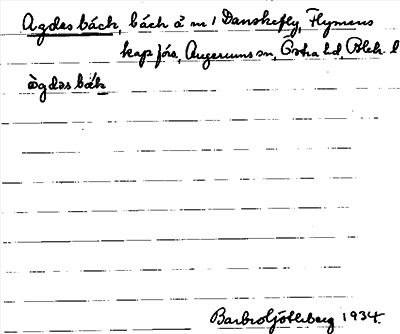 Agdas bäck, bäck å m / Danskefly, Flymens
kap förs, Augerums sn, Östra hd, Blek. l
àgdəs bák
Barbro Götherberg 1934.